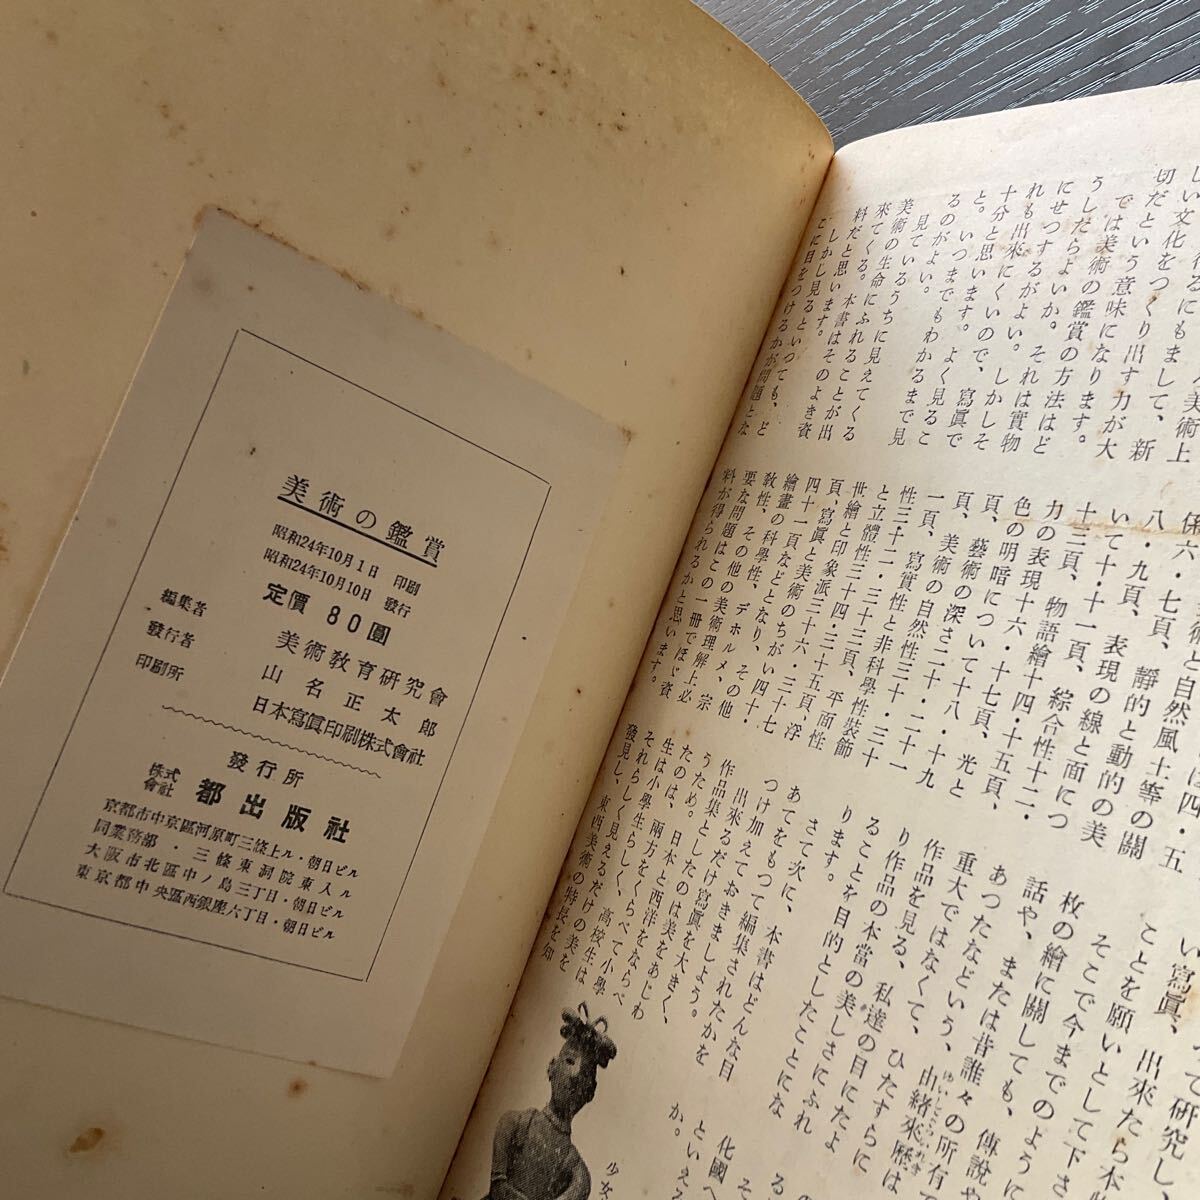 美術の鑑賞
昭和24年10月1日 印刷
昭和24年10月10日 發行
定價 80圓
編集者 美術教育研究會
發行者 山名正太郎
印刷所 日本寫眞印刷株式會社
發行所
株式會社 都出版社
京都市中京區河原町三條上ル・朝日ビル
同業務部・三條東洞院東入ル
大阪市北區中ノ島三丁目・朝日ビル
東京都中央區西銀座六丁目・朝日ビル
切だという意味になります。
では美術の鑑賞の方法はど
うしたらよいか。それは實物
にせつするがよい。しかしそ
れも出來にくいので、寫眞で
十分と思います。よく見るこ
と。いつまでもわかるまで見
るのがよい。
見ているうちに見えてくる
美術の生命にふれることが出
來てくる。本書はそのよき資
料だと思います。
しかし見るといつても、ど
こに目をつけるかが問題とな
八・九頁、靜的と動的の美
いて十・十一頁、綜合性十二・
十三頁、物語繪十四・十五頁、
力の表現十六・十七頁、光と
色の明暗について十八・十九
頁、藝術の深さ二十・二十一
頁、美術の自然性三十・三十
一頁、寫實性と非科學性裝飾
性三十二・三十三頁、平面性
と立體性三十四・三十五頁、浮
世繪と印象派三十六・三十七
頁、寫眞と美術のちがい四十・
四十一頁などとなり、その他
繪畫の科學性、デホルメ、宗
教性、その他の美術理解上必
要な問題はこの一冊でほゞ資
料が得られるかと思います。
い寫眞、
ことを願いとして下さ
そこで今までのように
枚の繪に關しても、傳說や
話や、または昔誰々の所有で
あつたなどという、由緒來歷は
重大ではなくて、ひたすらに
作品を見る、私達の目にたよ
り作品の本當の美しさにふれ
ることを目的としたことにな
ります。
さて次に、本書はどんな目
あてをもつて編集されたかを
つけ加えておきましよう。
出來るだけ寫眞を大きく、
作品集としたのは美をあじわ
うため。日本と西洋をならべ
たのは、兩方をくらべて小學
生は小學生らしく、高校生は
それらしく見えるだけの美を
發見し、東西美術の特長を知